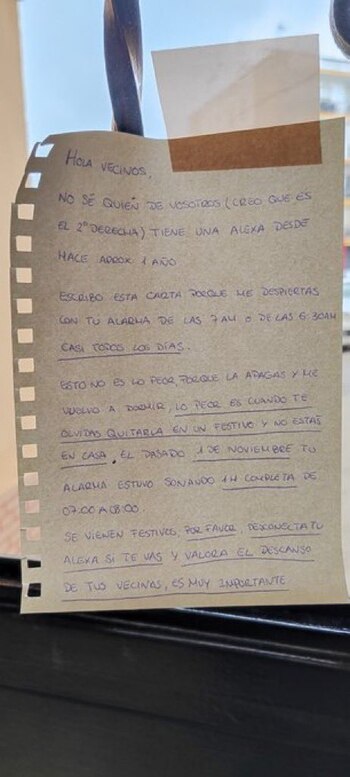 HOLA VECINOS,
NO SÉ QUIÉN DE VOSOTROS (CREO QUE ES
EL 2º DERECHA) TIENE UNA ALEXA DESDE
HACE APROX 1 AÑO
ESCRIBO ESTA CARTA PORQUE ME DESPIERTAS
CON TU ALARMA DE LAS 7 AM O DE LAS 6:30AM
CASI TODOS LOS DÍAS.
ESTO NO ES LO PEOR, PORQUE LA APAGAS Y ME
VUELVO A DORMIR, LO PEOR ES CUANDO TE
OLVIDAS QUITARLA EN UN FESTIVO Y NO ESTÁS
EN CASA. EL PASADO 1 DE NOVIEMBRE TU
ALARMA ESTUVO SONANDO 1H COMPLETA DE
07:00 A 08:00
SE VIENEN FESTIVOS, POR FAVOR DESCONECTA TU
ALEXA SI TE VAS Y VALORA EL DESCANSO
DE TUS VECINOS, ES MUY IMPORTANTE